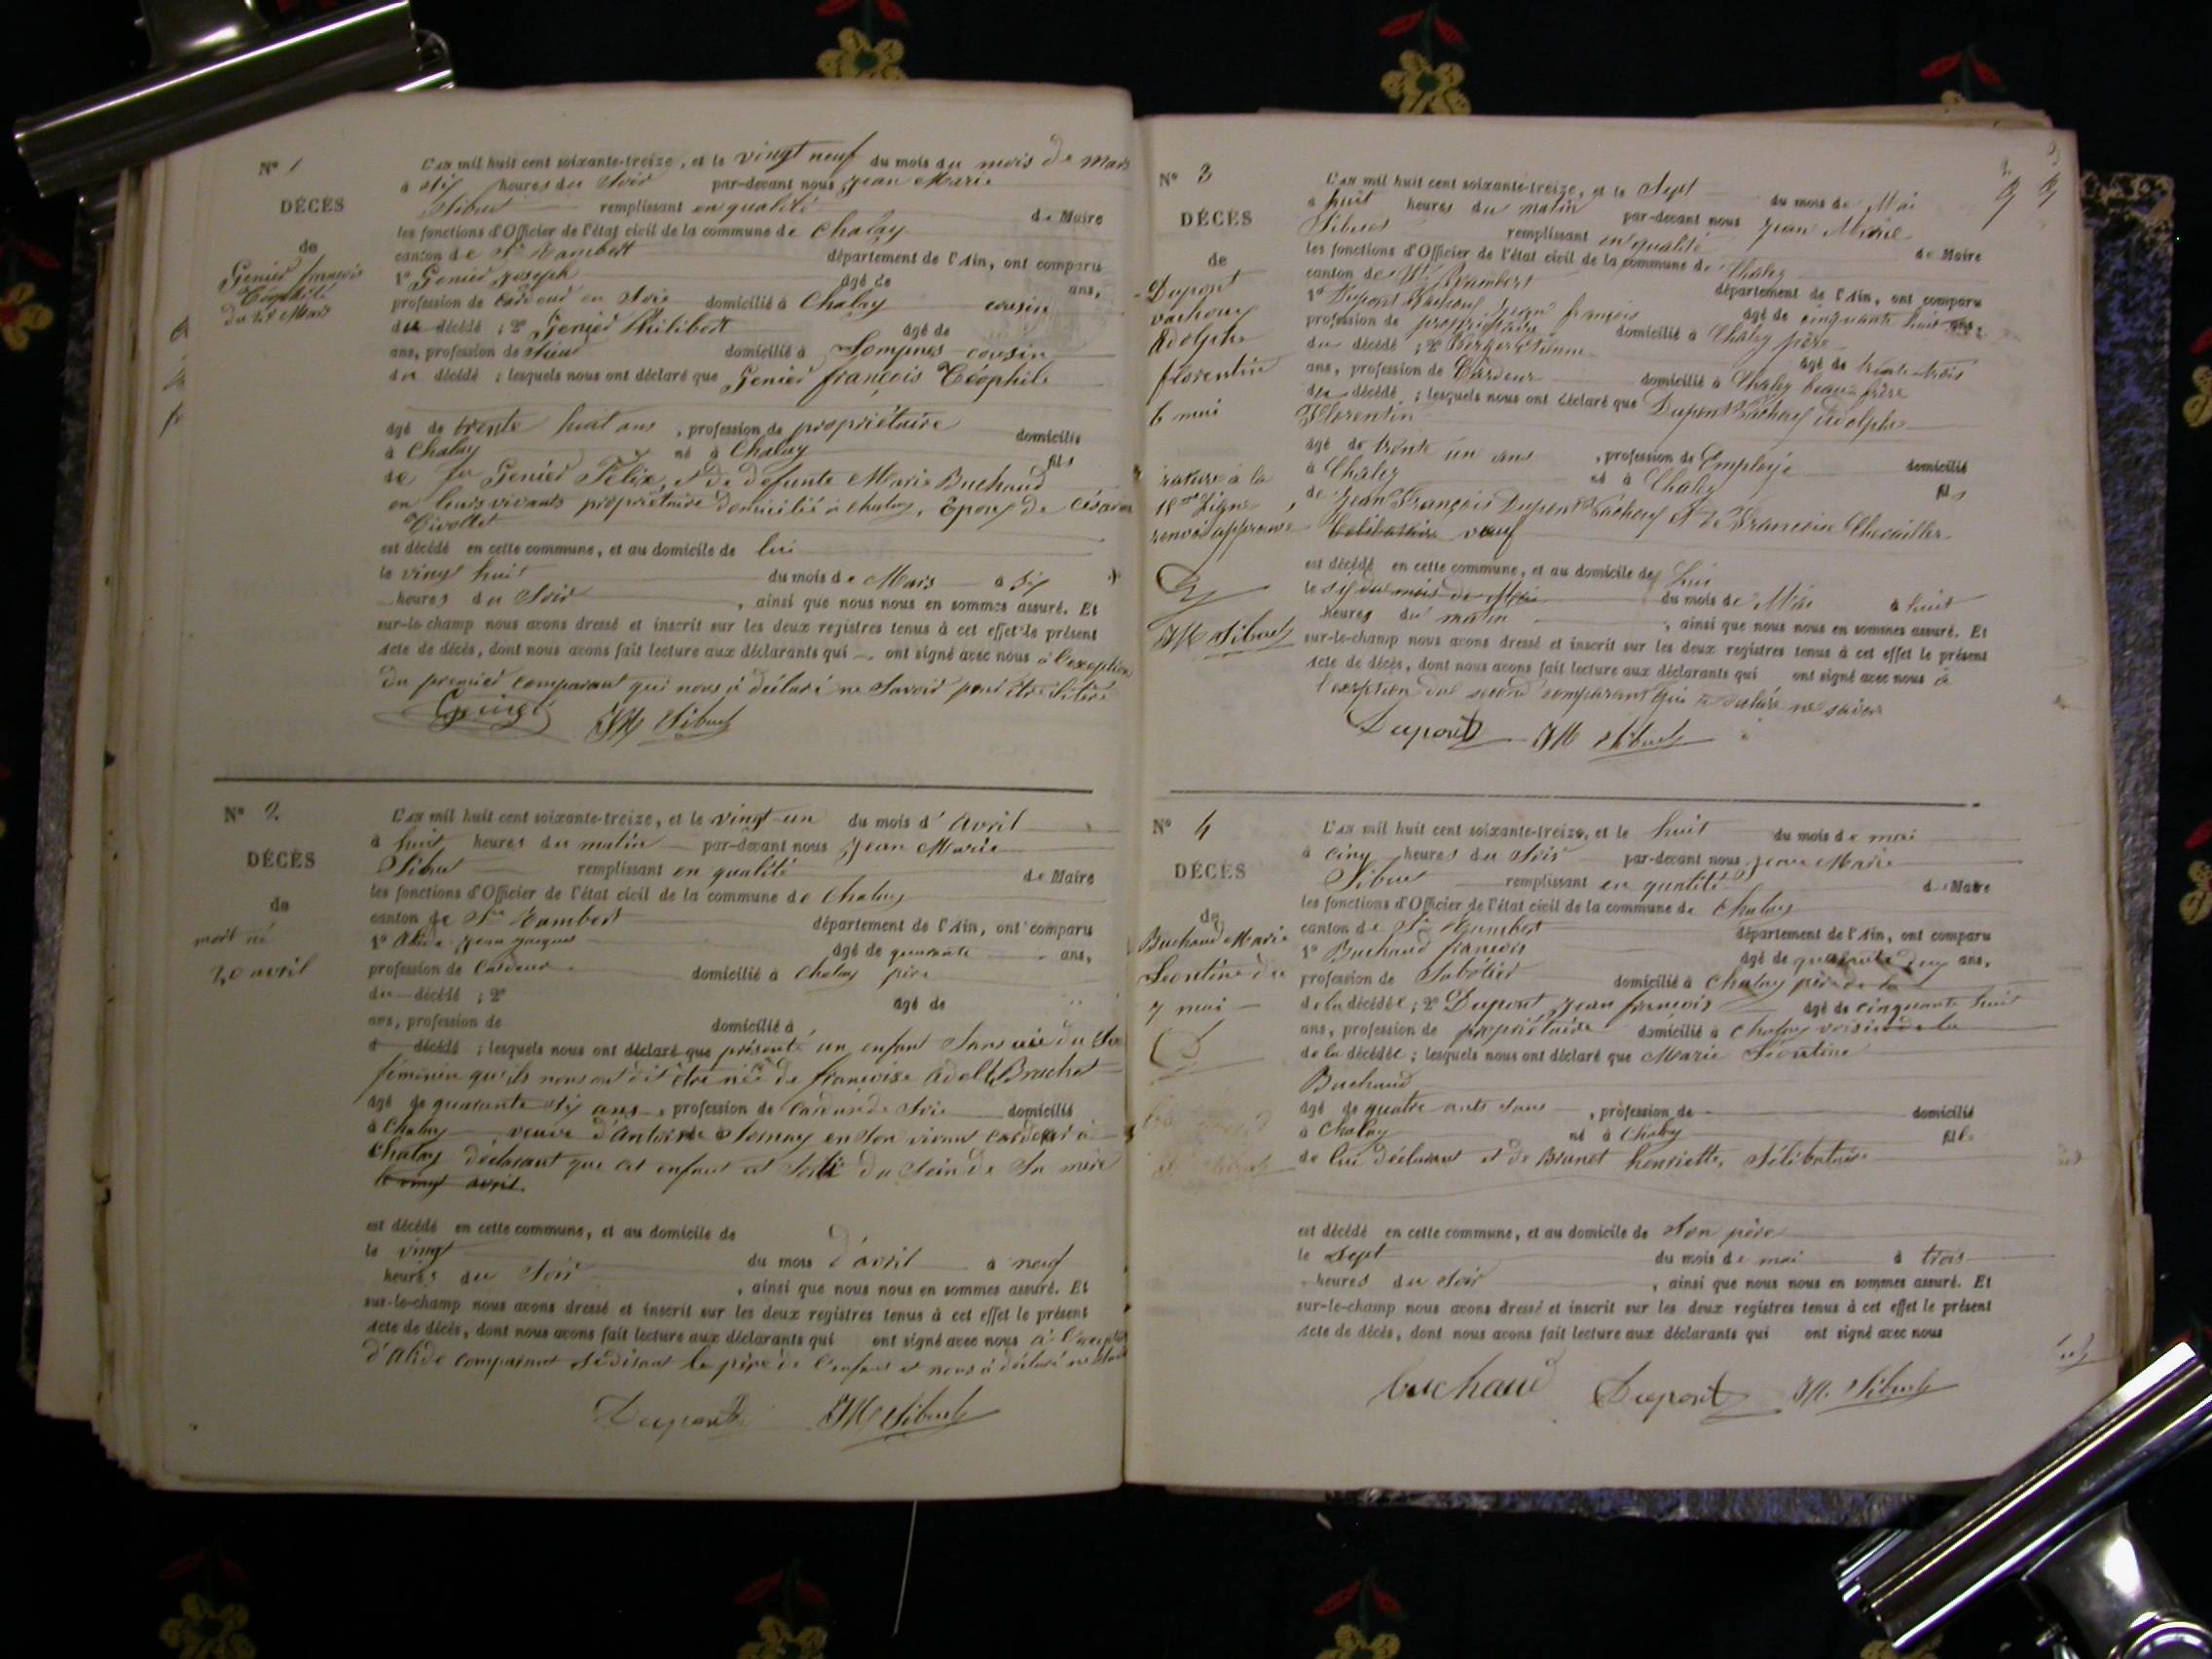 N° 1
DÉCÈS
de
Genier françois
Téophile
du 28 Mars
L'an mil huit cent soixante-treize, et le vingt neuf du mois du mois de Mars
à six heures du Soir par-devant nous Jean Marie
Sibuet remplissant en qualité de Maire
les fonctions d'Officier de l'état civil de la commune de Chaley
canton de St Rambert département de l'Ain, ont comparu
1° Genier Joseph âgé de ans,
profession de Cardeur en Soie domicilié à Chaley cousin
du décédé ; 2° Genier Philibert âgé de
ans, profession de domicilié à Lompnes cousin
du décédé ; lesquels nous ont déclaré que Genier françois Téophile
âgé de trente huit ans, profession de propriétaire domicilié
à Chaley né à Chaley fils
de feu Genier Félix, et de defunte Marie Buchaud
en leurs vivants propriétaire domicilié à chaley, Epoux de Césarine
Tivollet
est décédé en cette commune, et au domicile de lui
le vingt huit du mois de Mars à six
heures du Soir, ainsi que nous nous en sommes assuré. Et
sur-le-champ nous avons dressé et inscrit sur les deux registres tenus à cet effet le présent
acte de décès, dont nous avons fait lecture aux déclarants qui ont signé avec nous à l'exception
du premier comparant qui nous à déclaré ne Savoir pour être
JM Sibuet
N° 2
DÉCÈS
de
mort né
20 avril
L'an mil huit cent soixante-treize, et le vingt-un du mois d'Avril
à huit heures du matin par-devant nous Jean Marie
Sibuet remplissant en qualité de Maire
les fonctions d'Officier de l'état civil de la commune de Chaley
canton de St Rambert département de l'Ain, ont comparu
1° Jean Jacques âgé de quarante ans,
profession de Cardeur domicilié à Chaley père
du décédé ; 2° âgé de
ans, profession de domicilié à
d décédé ; lesquels nous ont déclaré que présenté un enfant Sans vie du Sexe
feminin qu'ils nous ont dit être née de françoise Adell Brachet
âgé de quarante six ans, profession de Cardeur de Soie domicilié
à Chaley veuve d'Antoine Sernay en Son vivant Cardeur à
Chaley déclarant que cet enfant est Sorti du Sein de Sa mère
le vingt avril
est décédé en cette commune, et au domicile de
le vingt du mois d'avril à neuf
heures du Soir, ainsi que nous nous en sommes assuré. Et
sur-le-champ nous avons dressé et inscrit sur les deux registres tenus à cet effet le présent
acte de décès, dont nous avons fait lecture aux déclarants qui ont signé avec nous à
comparant Se disant le père de l'enfant et nous à déclaré ne
Dupont JM Sibuet
N° 3
DÉCÈS
de
Dupont
vachoux
Adolphe
florentin
6 mai
rature à la
18me Ligne
renvoi approuvé
JM Sibuet
L'an mil huit cent soixante-treize, et le Sept du mois de Mai
à huit heures du matin par-devant nous Jean Marie
Sibuet remplissant en qualité de Maire
les fonctions d'Officier de l'état civil de la commune de Chaley
canton de St Rambert département de l'Ain, ont comparu
1° Dupont Vachoux Jean françois âgé de cinquante huit ans,
profession de propriétaire domicilié à Chaley père
du décédé ; 2° Berger Etienne âgé de trente-trois
ans, profession de Cardeur domicilié à Chaley beau-frère
du décédé ; lesquels nous ont déclaré que Dupont Vachoux Adolphe
Florentin
âgé de trente un ans, profession de Employé domicilié
à Chaley né à Chaley fils
de Jean François Dupont Vachoux et de Francoise Chevailler
Celibataire veuf
est décédé en cette commune, et au domicile de lui
le six du mois de Mai du mois de Mai à huit
heures du matin, ainsi que nous nous en sommes assuré. Et
sur-le-champ nous avons dressé et inscrit sur les deux registres tenus à cet effet le présent
acte de décès, dont nous avons fait lecture aux déclarants qui ont signé avec nous à
l'exeption du second comparant qui a déclaré ne savoir
Dupont JM Sibuet
N° 4
DÉCÈS
de
Buchaud Marie
Leontine du
7 mai
L'an mil huit cent soixante-treize, et le huit du mois de mai
à cinq heures du Soir par-devant nous Jean Marie
Sibuet remplissant en qualité de Maire
les fonctions d'Officier de l'état civil de la commune de Chaley
canton de St Rambert département de l'Ain, ont comparu
1° Buchaud françois âgé de quarante deux ans,
profession de Sabotier domicilié à Chaley père de la
de la décédée ; 2° Dupont Jean françois âgé de cinquante huit
ans, profession de propriétaire domicilié à Chaley voisin de la
de la décédée ; lesquels nous ont déclaré que Marie Léontine
Buchaud
âgé de quatre ants Sans, profession de domicilié
à Chaley né à Chaley fil
de lui déclarant et de Brunet henriette, Sélibataire
est décédé en cette commune, et au domicile de Son père
le Sept du mois de mai à trois
heures du Soir, ainsi que nous nous en sommes assuré. Et
sur-le-champ nous avons dressé et inscrit sur les deux registres tenus à cet effet le présent
acte de décès, dont nous avons fait lecture aux déclarants qui ont signé avec nous
buchaud Dupont JM Sibuet